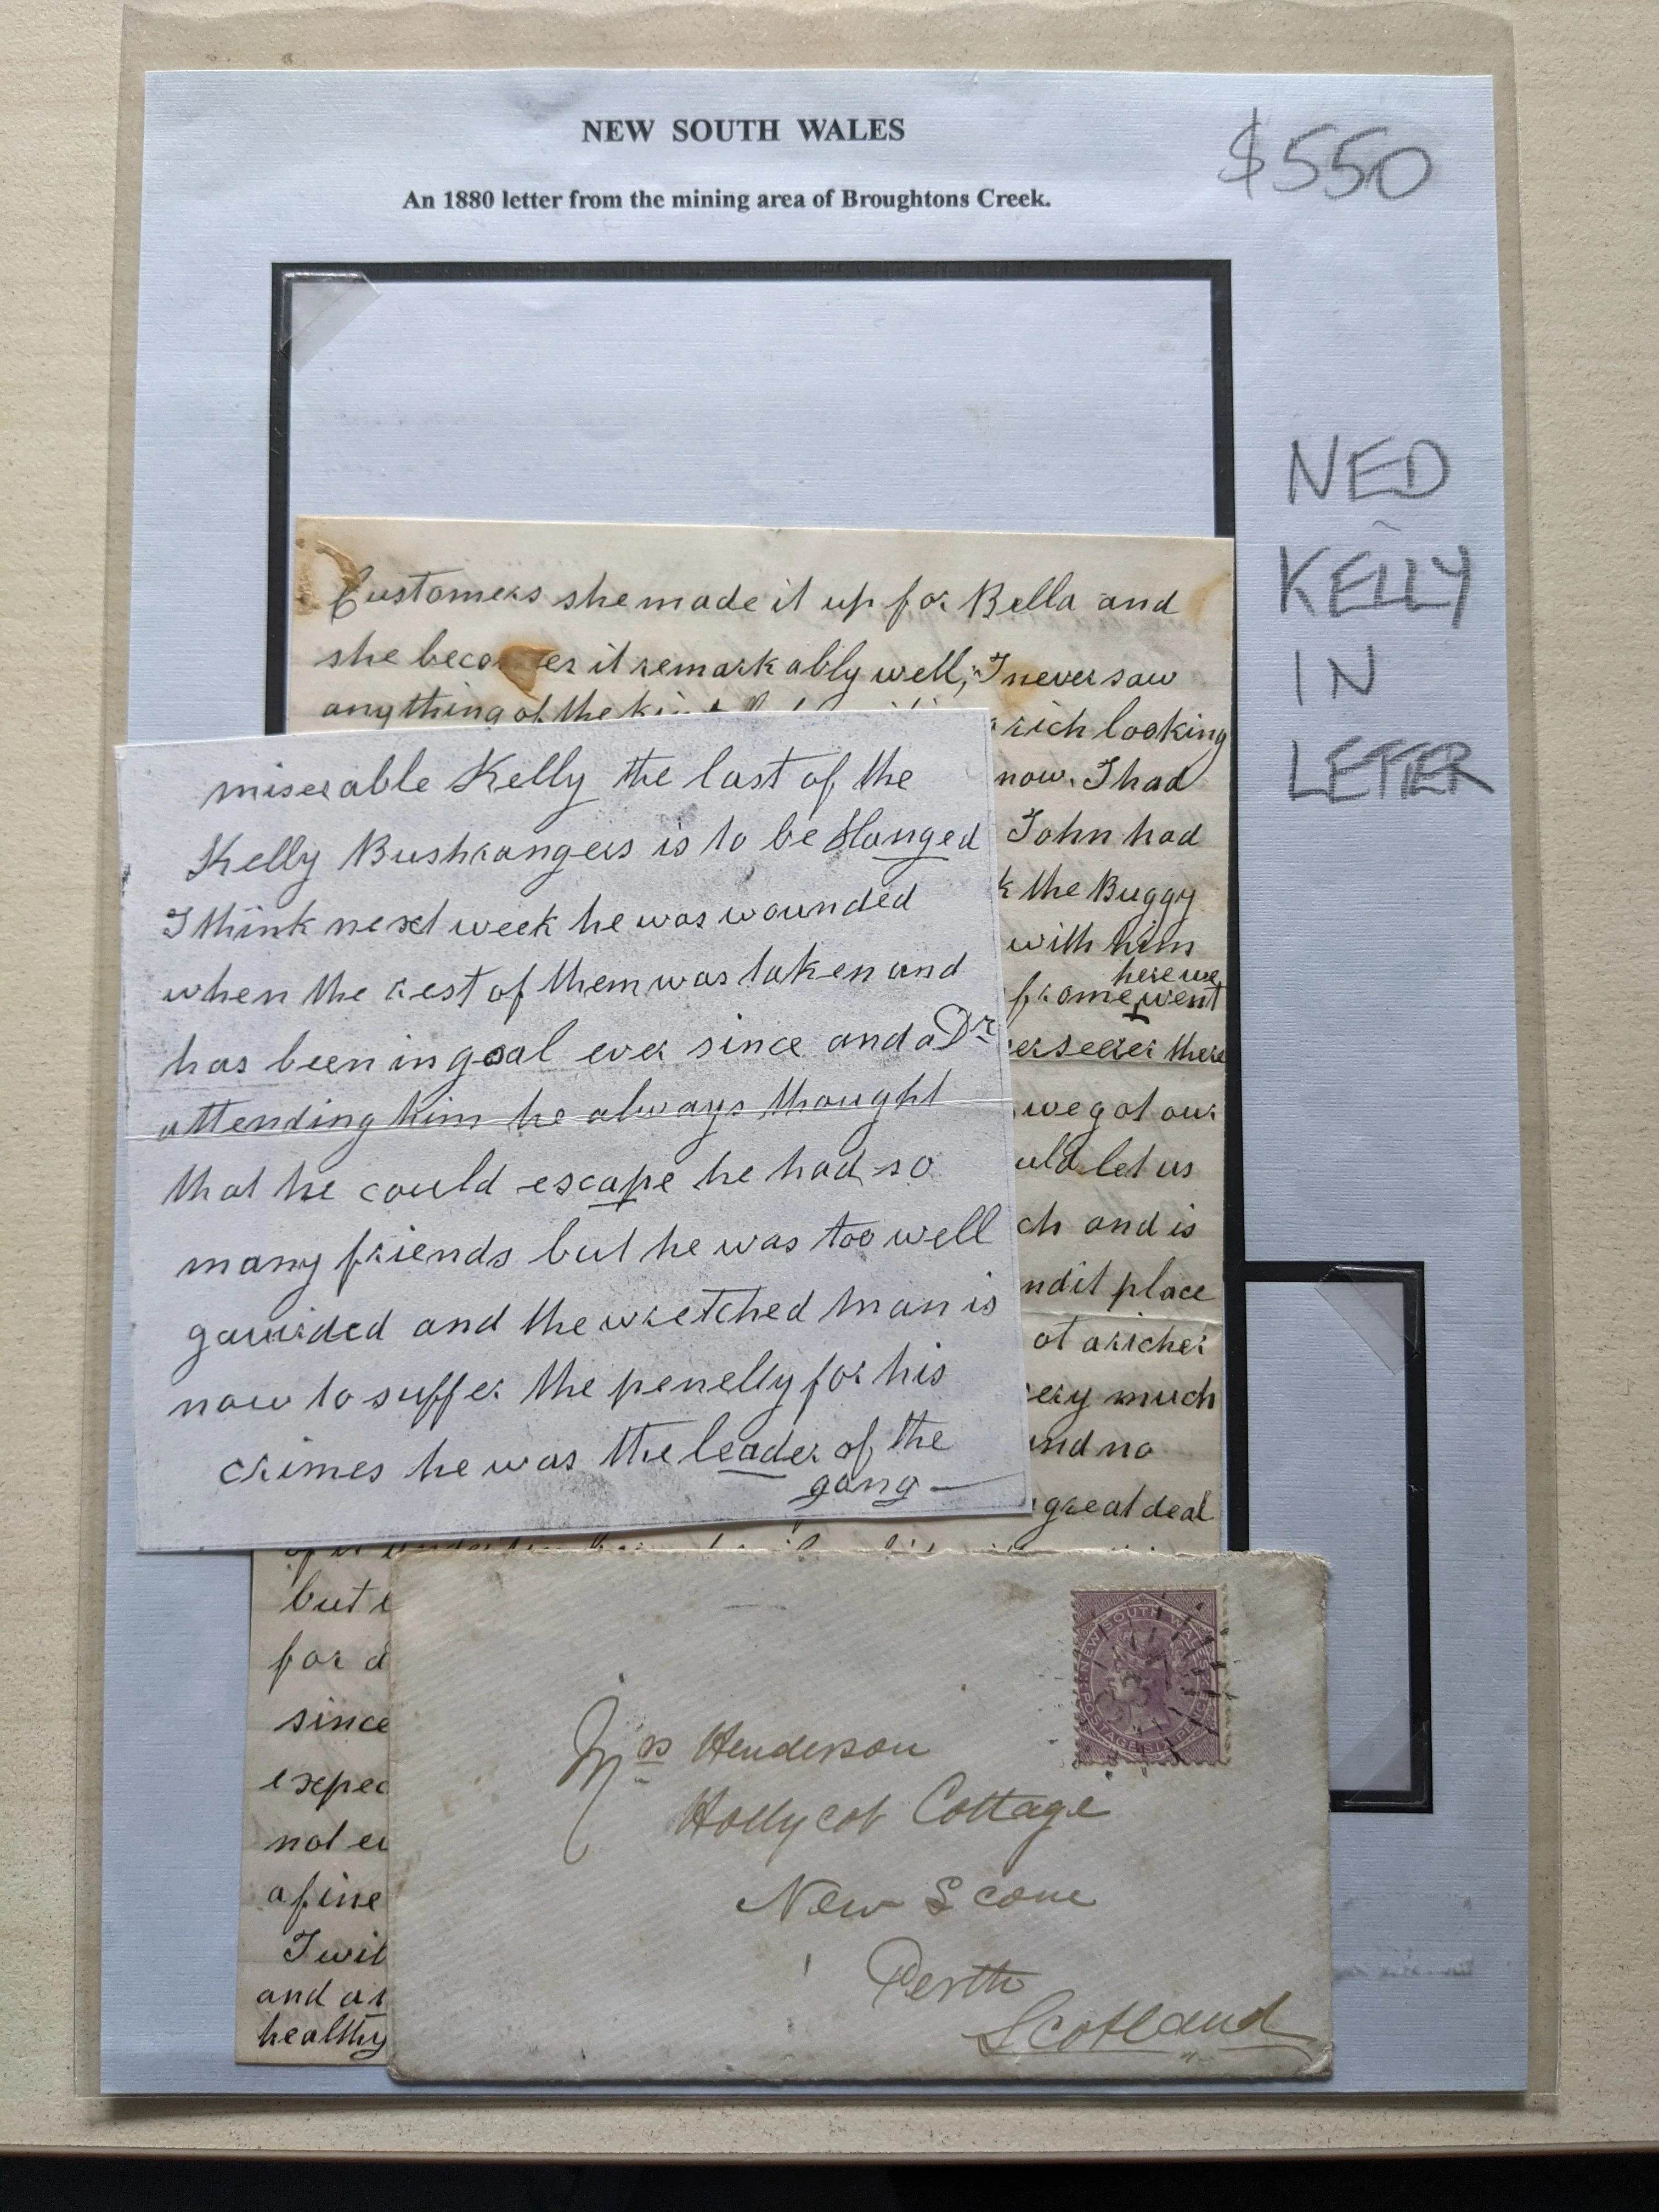 NEW SOUTH WALES
An 1880 letter from the mining area of Broughtons Creek.
$550
NED
KELLY
IN
LETTER
Customers she made it up for Bella and
she becomes it remarkably well, I never saw
any thing of the
rich looking
now. I had
John had
the Buggy
with him
here we
from went
there
we got our
let us
and is
place
a richer
much
no
great deal
miserable Kelly the last of the
Kelly Bushrangers is to be Hanged
I think next week he was wounded
when the rest of them was taken and
has been in goal ever since and a Dr
attending him he always thought
that he could escape he had so
many friends but he was too well
gaurded and the wretched man is
now to suffer the penelty for his
crimes he was the leader of the
gang —
but
for
since
a fine
and
healthy
NEW SOUTH WALES
POSTAGE SIX PENCE
Mrs Henderson
Hollycot Cottage
New Scone
Perth
Scotland